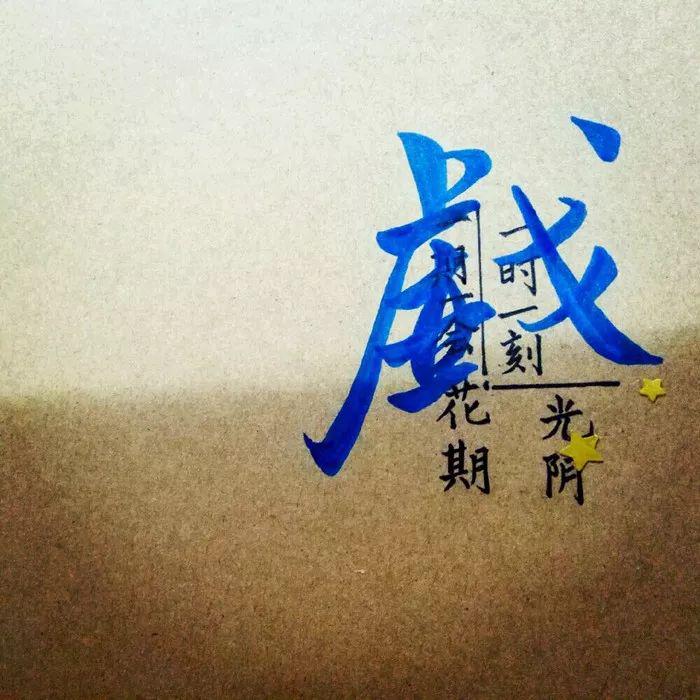 戯
一时一刻
光阴
一期一会
花期